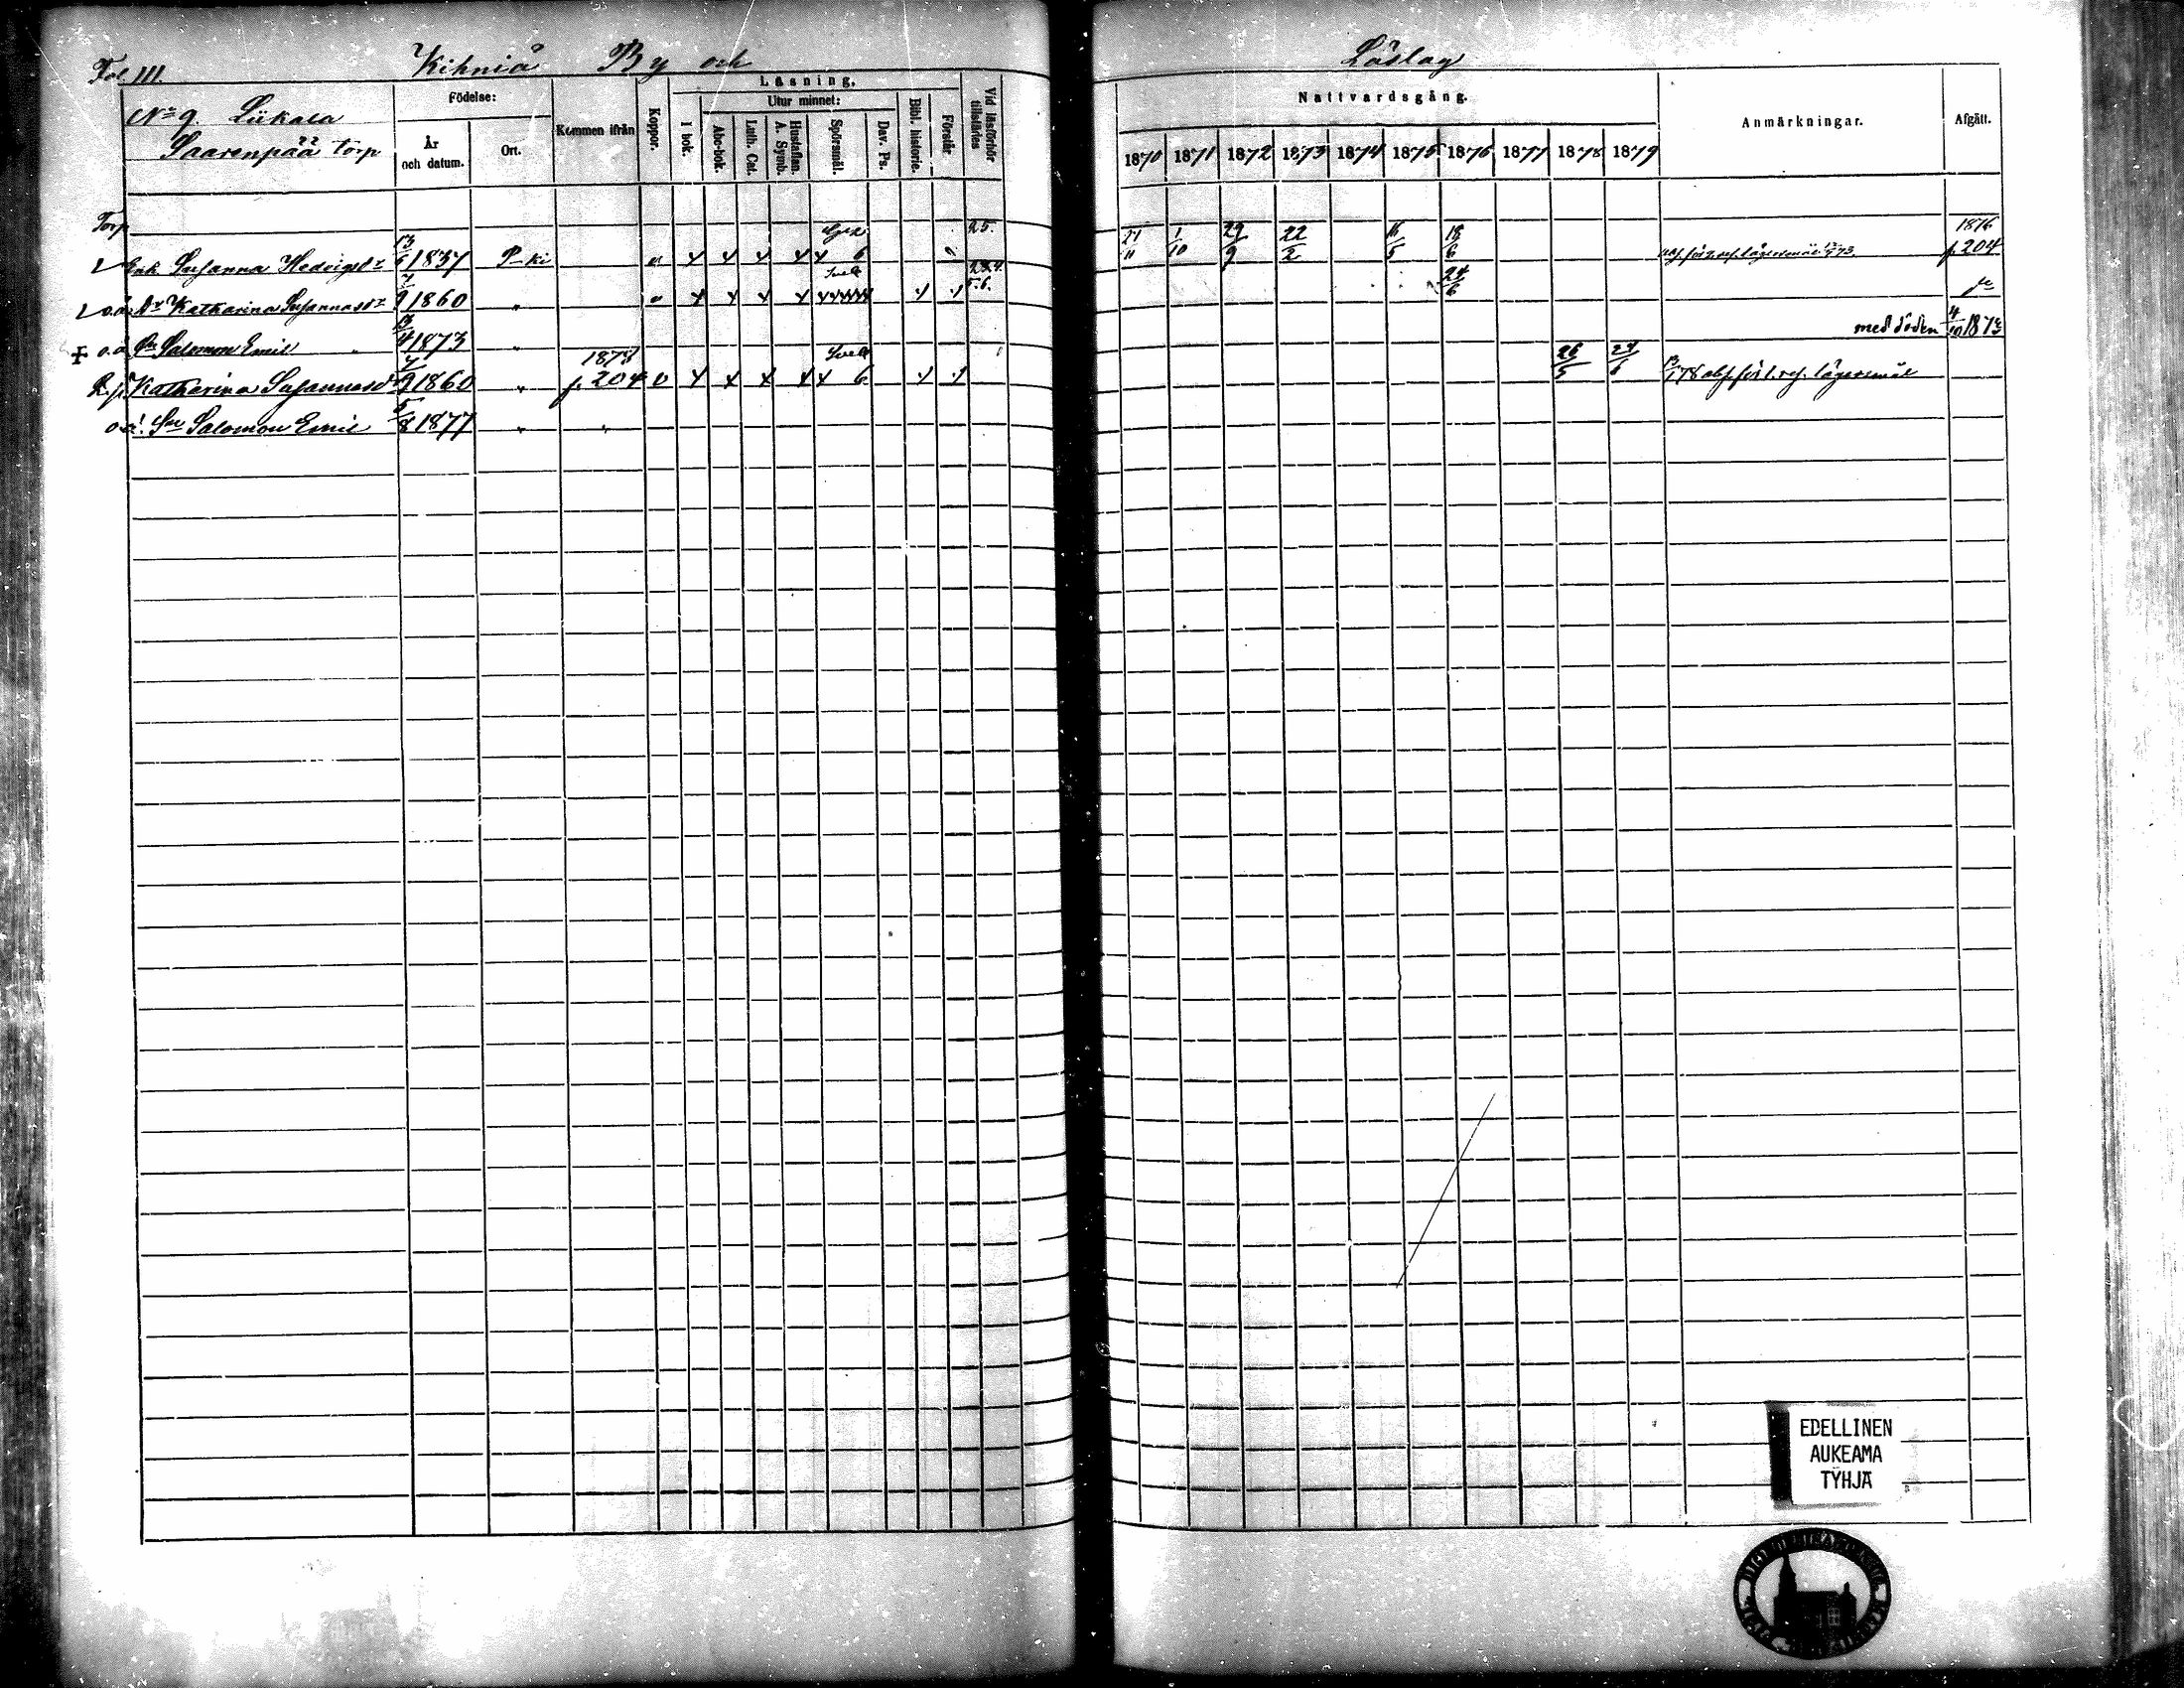 Fol. 111.
Kihniä By och Läslag
No 9. Liikala
Saarenpää torp
Födelse:
År och datum.
Ort.
Kommen ifrån
Koppor.
Läsning.
I bok.
Utur minnet:
Abc-bok.
Luth. Cat.
Hustaflan. A. Symb.
Spörsmål.
Dav. Ps.
Bibl. historie.
Förstår
Vid läsförhör tillstädes
Nattvardsgång.
1870 1871 1872 1873 1874 1875 1876 1877 1878 1879
Anmärkningar.
Afgått.
Torp
Enk Susanna Hedvigsdr 13/6 1837 P-ki 6 25. 21/11 1/10 29/9 22/2 16/5 18/6 1876 p. 204
o.ä. Dr Katharina Susannasdr 7/9 1860 " 5.6. 24/6
‡ o.ä. Sn Salomon Emil 13/4 1873 " med döden 4/10 1873
Katharina Susannasdr 7/9 1860 " 1878 p. 204 0 6 26/5 24/6 13/1 78 abs. för 1. res. lägersmål
o.ä. Sn Salomon Emil 5/8 1877 " "
EDELLINEN
AUKEAMA
TYHJÄ